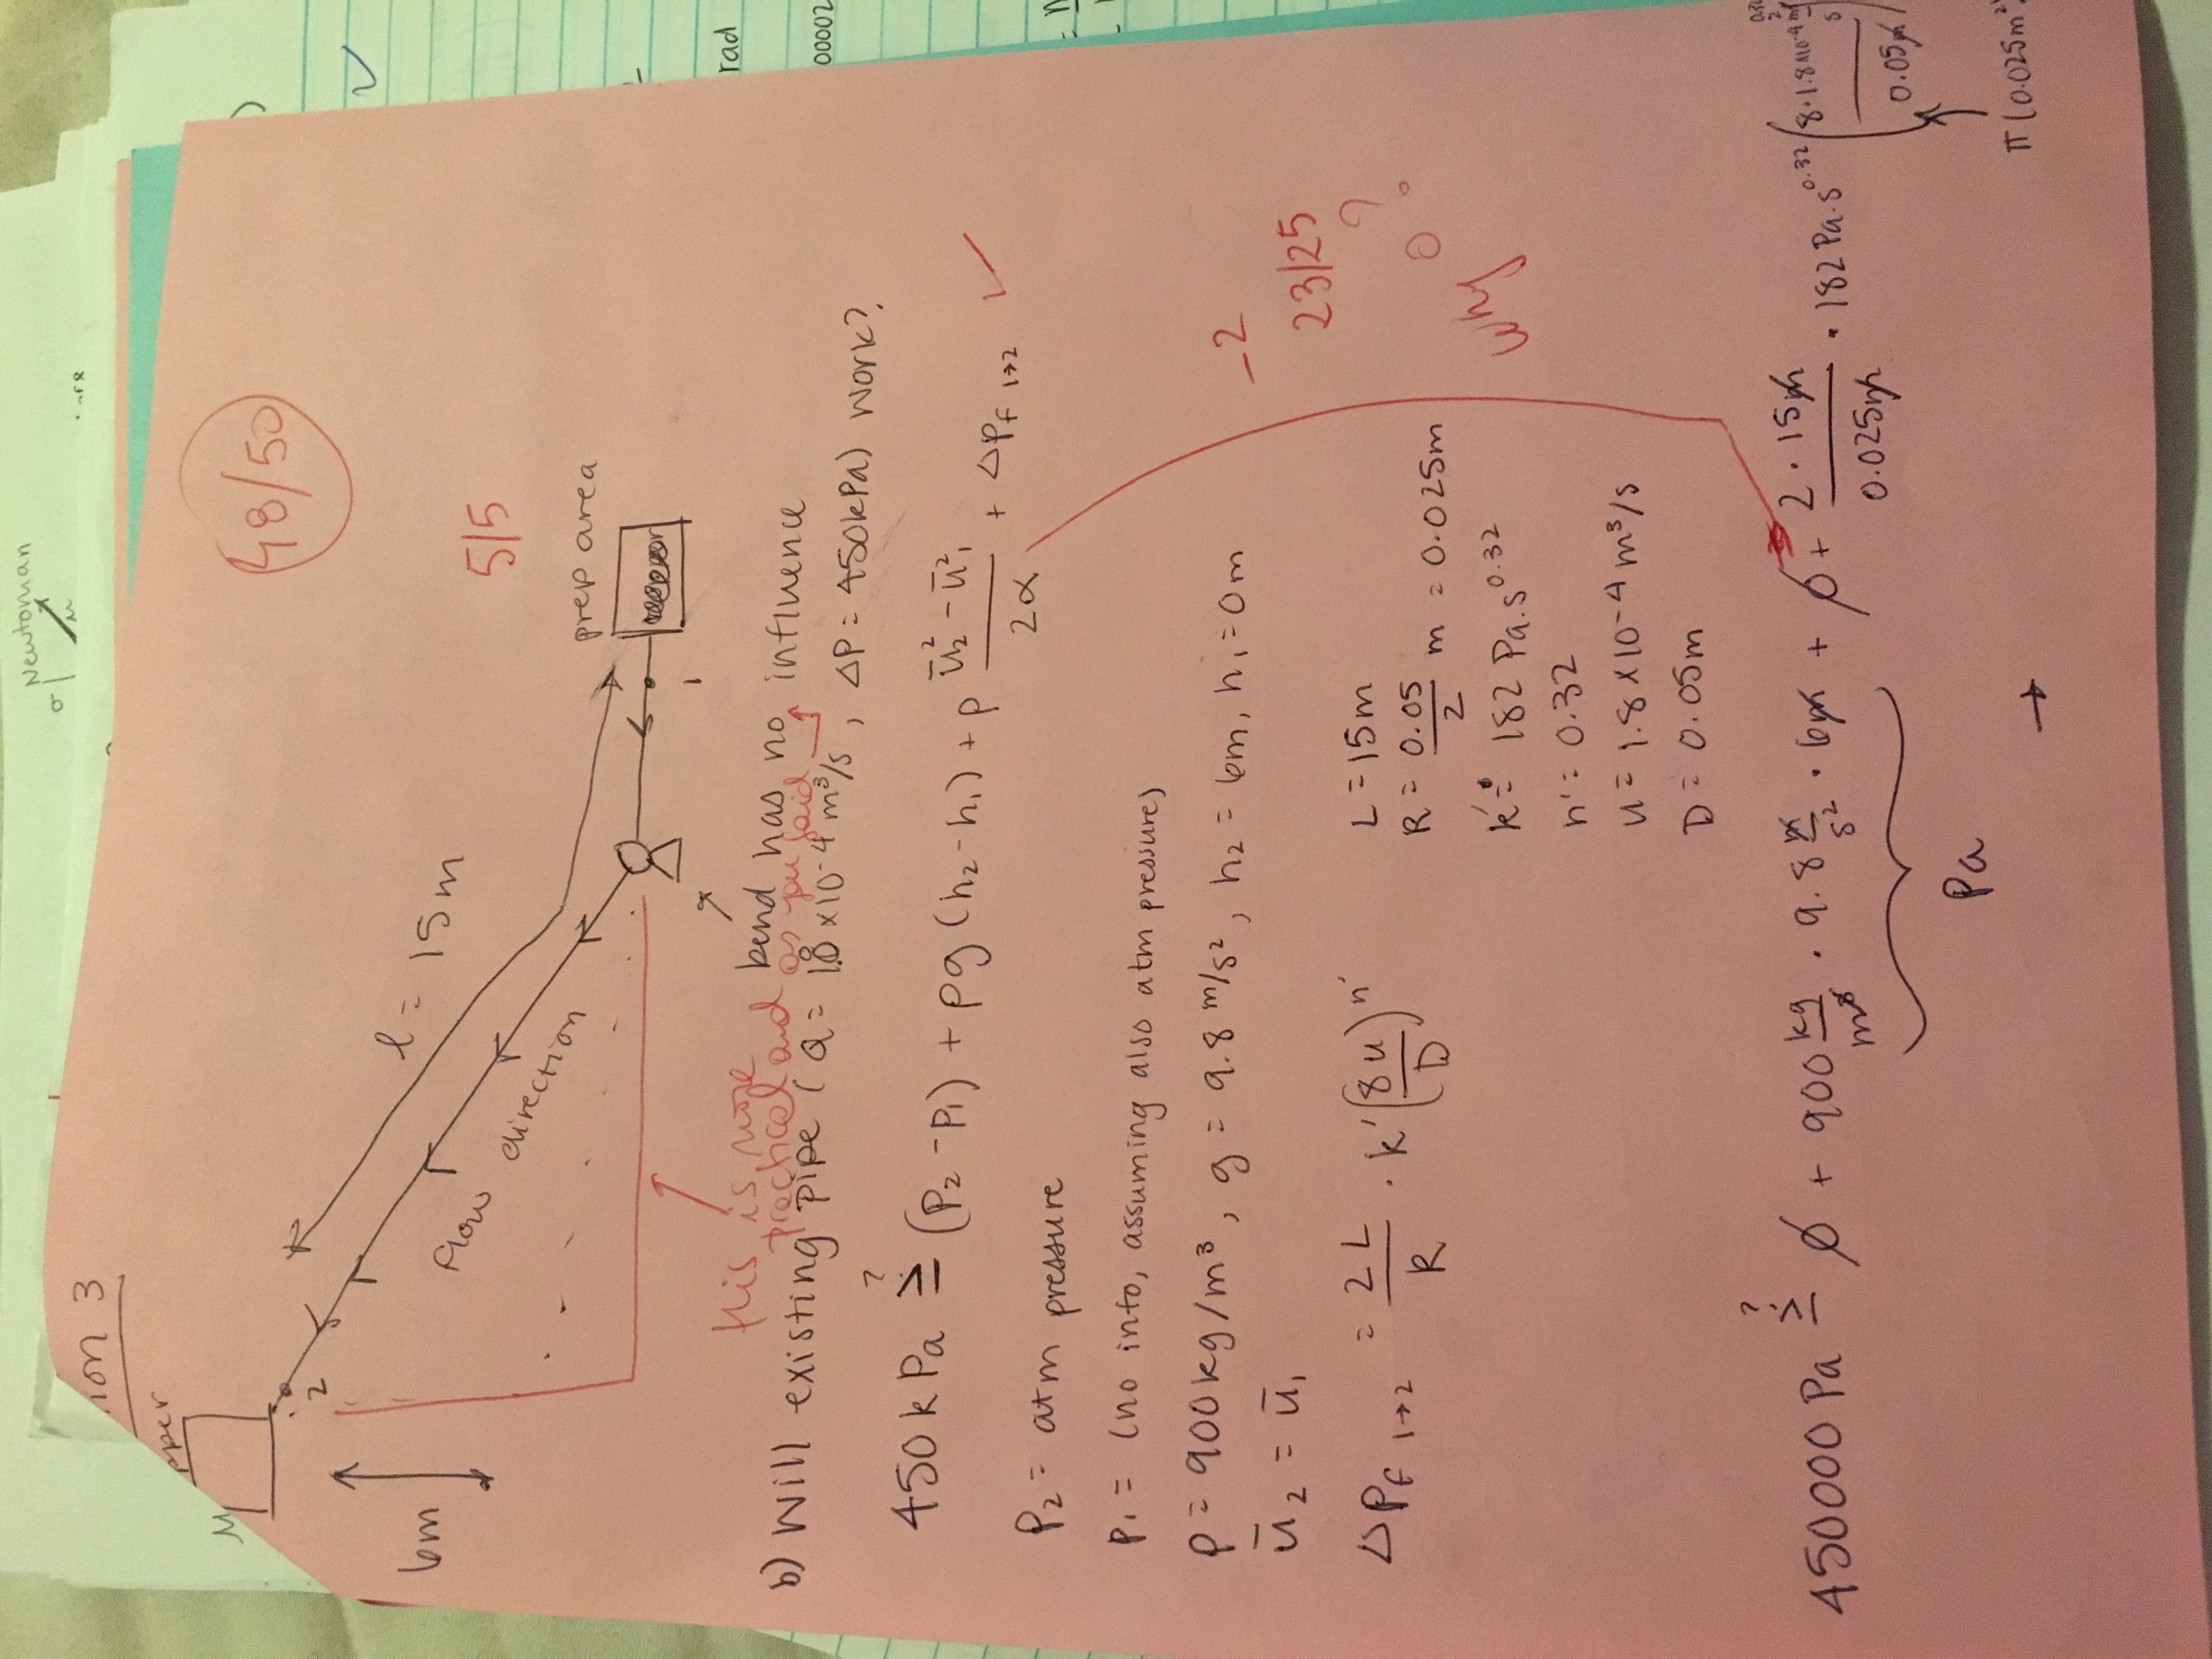 Newtonian
σ
μ
ion 3
pper
M
48/50
2
6m
l = 15m
Flow direction
5/5
prep area
1
this is more
practical and as you said
bend has no influence
b) Will existing pipe (Q = 1.8 x10-4 m³/s, ΔP = 450kPa) work?
450 kPa ≥? (P₂ - P₁) + ρg (h₂ - h₁) + ρ (ū₂² - ū₁²)/2α + ΔPf 1→2 ✓
P₂ = atm pressure
P₁ = (no info, assuming also atm pressure)
ρ = 900 kg/m³, g = 9.8 m/s², h₂ = 6m, h₁ = 0m
-2
ū₂ = ū₁
23/25
ΔPf 1→2 = 2L/R · k'(8u/D)^n'
L = 15m
R = 0.05/2 m = 0.025m
why 0?
k' = 182 Pa.s^0.32
n' = 0.32
u = 1.8 x 10-4 m³/s
D = 0.05m
450000 Pa ≥? 0 + 900 kg/m³ · 9.8 m/s² · 6m + 0 + 2 · 15m/0.025m · 182 Pa.s^0.32 (8·1.8x10-4 m/s / 0.05m)
Pa
π(0.025m²)
→
rad
00002